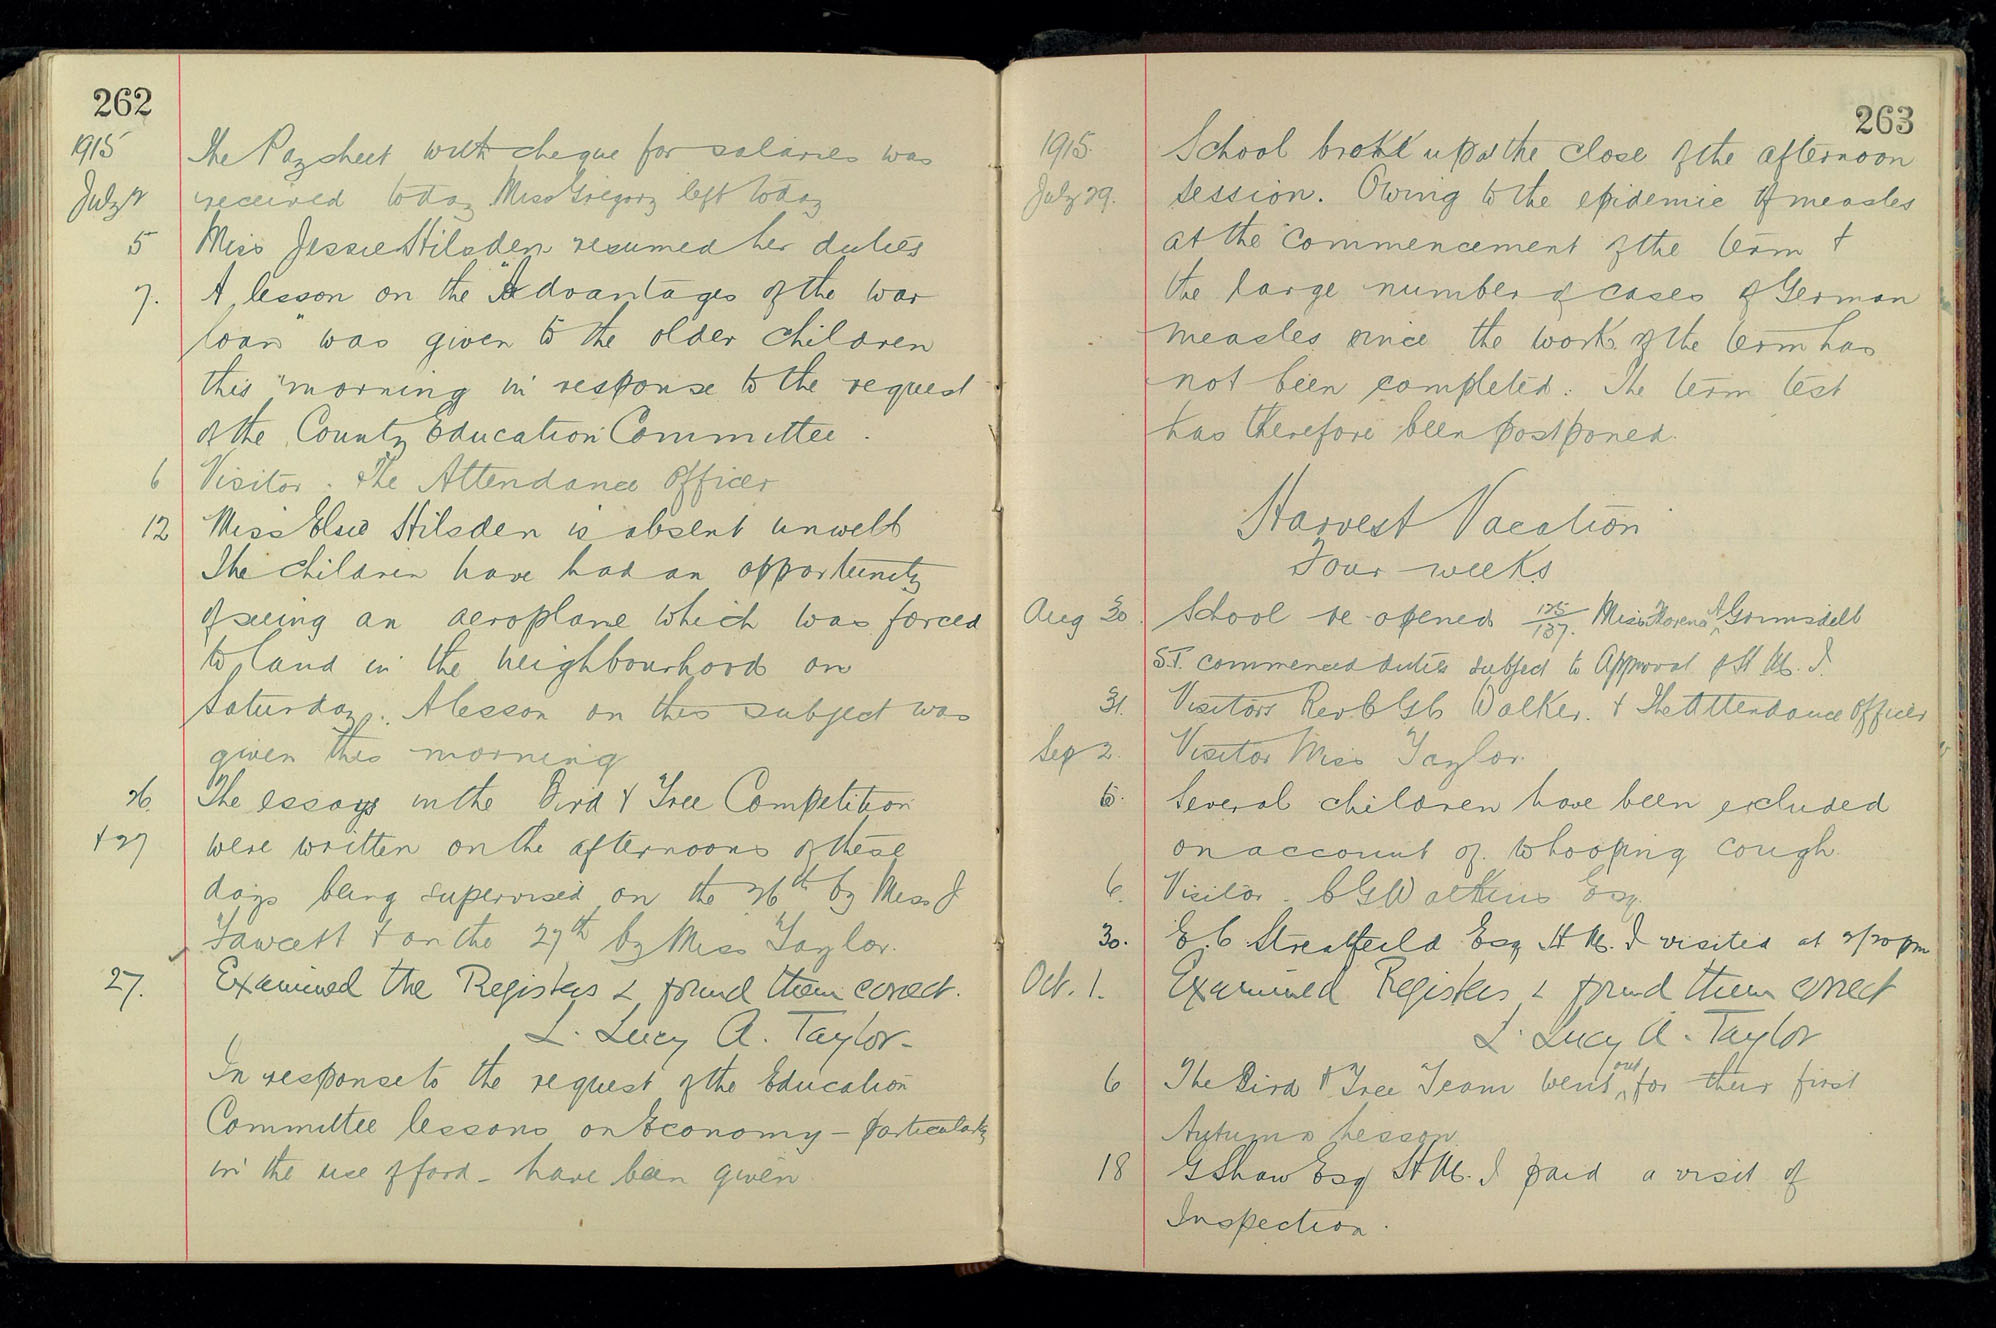 262
1915 The Paysheet with cheque for salaries was
July 2 received today Miss Gregory left today
5 Miss Jessie Hilsden resumed her duties
7. A lesson on the "Advantages of the war
loan" was given to the older children
this morning in response to the request
of the County Education Committee.
6 Visitor. The Attendance Officer
12 Miss Elsie Hilsden is absent unwell
The children have had an opportunity
of seeing an aeroplane which was forced
to land in the neighbourhood on
Saturday. A lesson on this subject was
given this morning
26. The essays in the Bird & Tree Competition
+ 27 were written on the afternoons of these
days being supervised on the 26th by Miss J
Fawcett & on the 27th by Miss Taylor.
27. Examined the Registers & found them correct.
L. Lucy A. Taylor-
In response to the request of the Education
Committee lessons on Economy - particularly
in the use of food - have been given
263
1915. School broke up at the close of the afternoon
July 29. session. Owing to the epidemic of measles
at the commencement of the term &
the large number of cases of German
measles since the work of the term has
not been completed. The term test
has therefore been postponed.
Harvest Vacation
Four weeks
Aug 30. School re-opened 125/137. Miss Florence A Grimsdell
S.T. commenced duties subject to Approval of H.M.I.
31. Visitors Rev C G C Walker. & The Attendance Officer
Sep 2. Visitor Miss Taylor.
6. Several children have been excluded
on account of whooping cough.
6. Visitor. C G Watkins Esq.
30. E. C. Streatfeild Esq H.M.I visited at 2/20 pm
Oct. 1. Examined Registers & found them correct
L. Lucy A. Taylor
6 The Bird & Tree Team went out for their first
Autumn Lesson
18 G Shaw Esq H.M.I paid a visit of
Inspection.